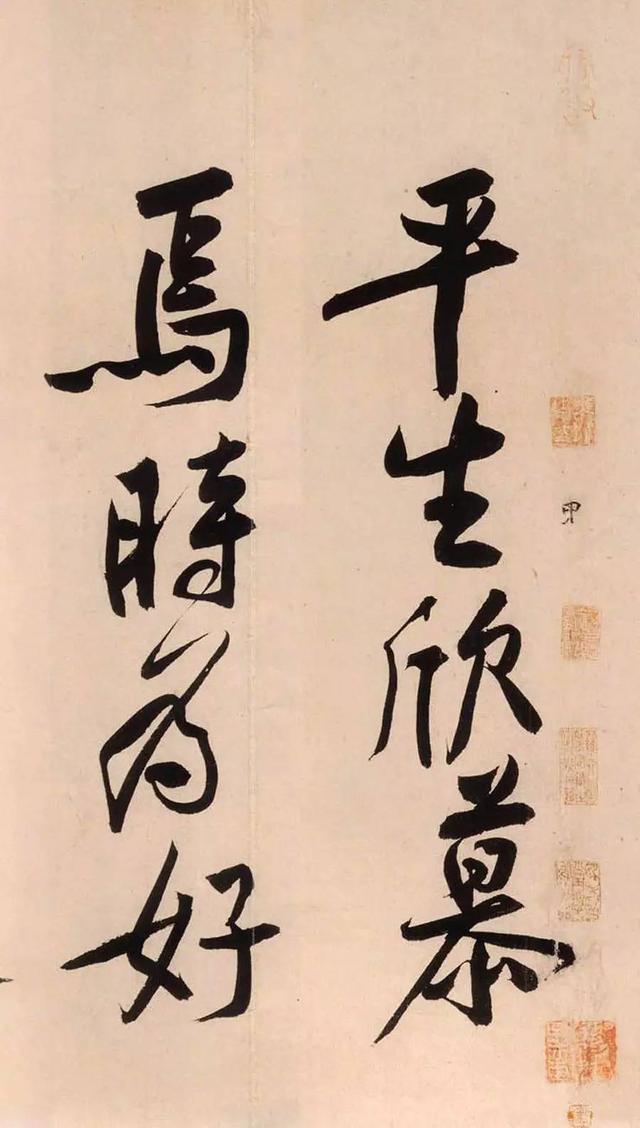 平生欣慕
焉時為好
甲